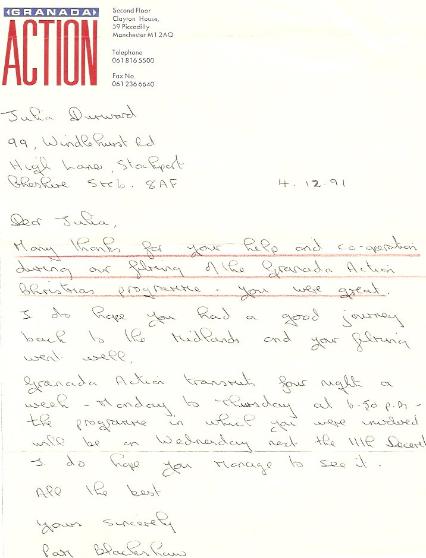 GRANADA
ACTION
Second Floor
Clayton House,
59 Piccadilly
Manchester M1 2AQ
Telephone
061 816 5500
Fax No.
061 236 6640
Julia Durward
99, Windlehurst Rd
High Lane, Stockport
Cheshire 8AF
4.12.91
Dear Julia,
Many thanks for your help and co-operation
during our filming of the Granada Action
Christmas programme. You were great.
I do hope you had a good journey
back to the Midlands and your filming
went well.
Granada Action transmits four nights a
week - Monday to Thursday at 6-30 p.m -
the programme in which you were involved
will be on Wednesday next the 11th
I do hope you manage to see it.
All the best
Yours sincerely
Pam Blackshaw